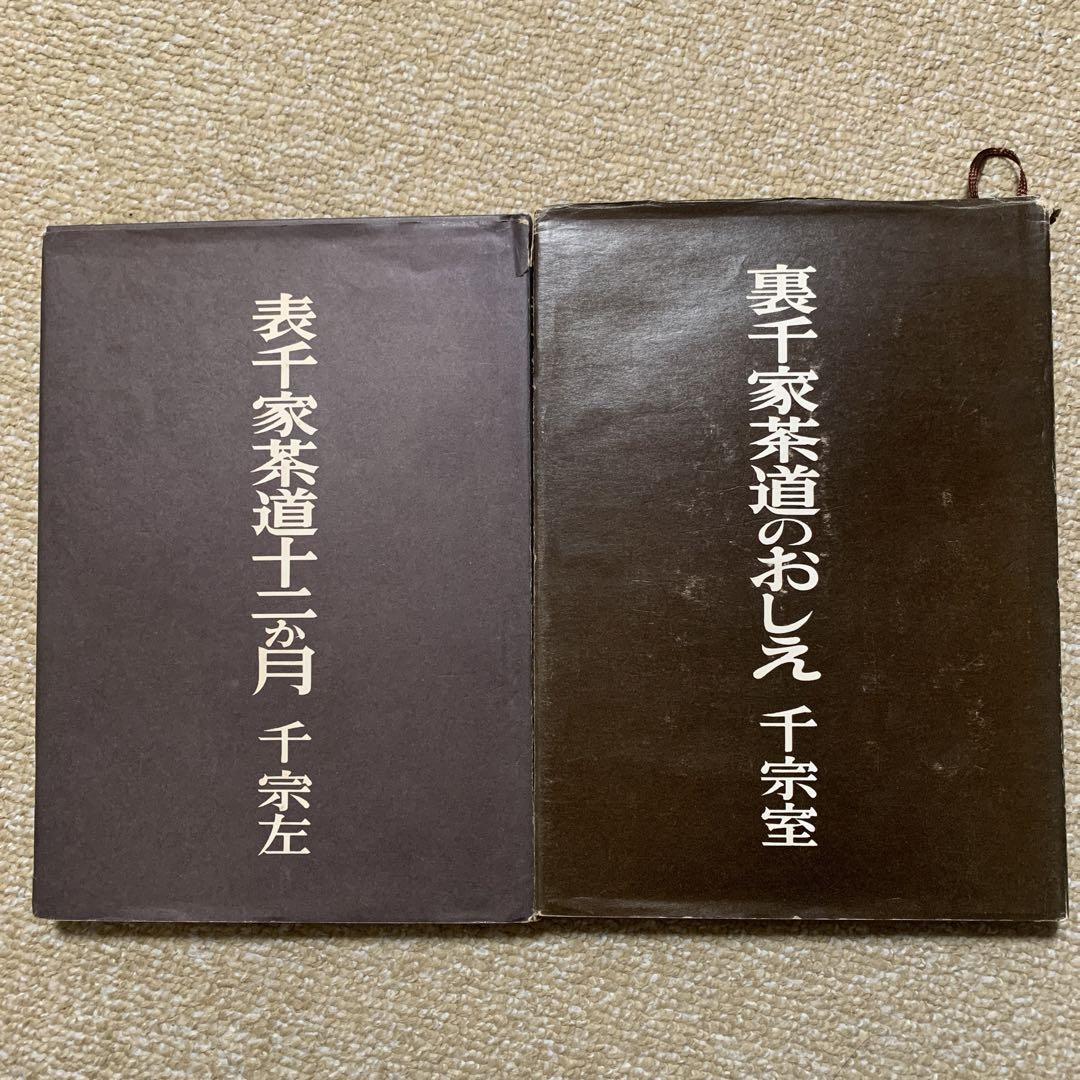 表千家茶道十二か月 千宗左
裏千家茶道のおしえ 千宗室